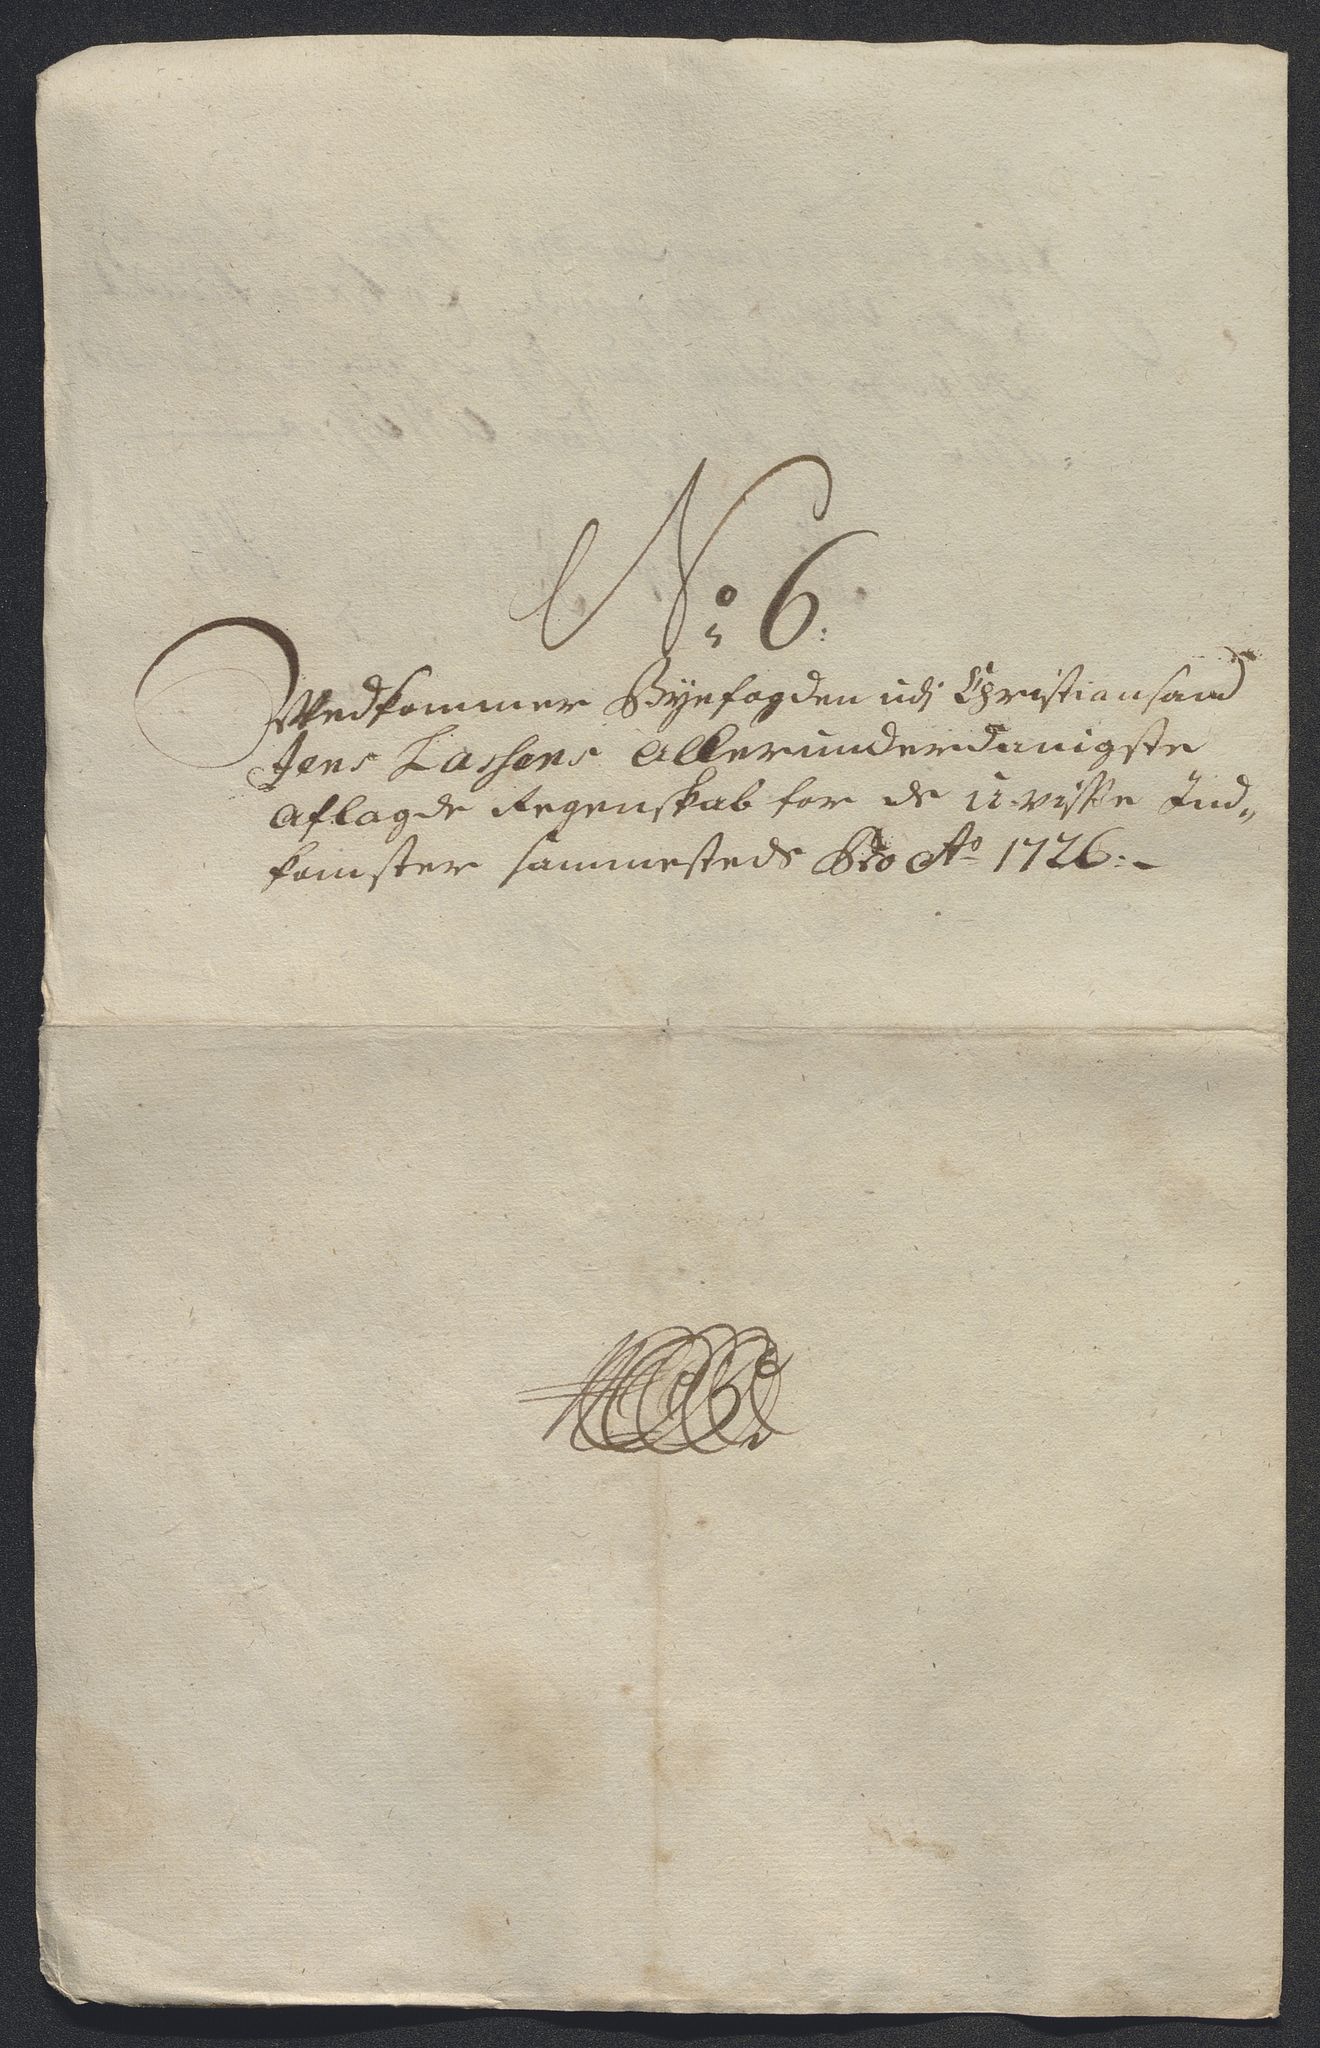 No 6:
Vedkommer Byefogden udj Christiansand
Jens Lassens Allerunderdanigste
Aflagde Regenskab for de u-visse Ind„
komster sammesteds Pro Ao 1726:-